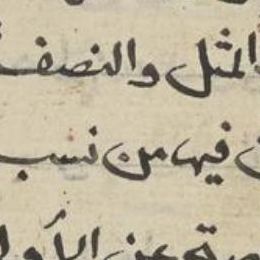 المثل والنصف
فيها من نسب
عن الأول